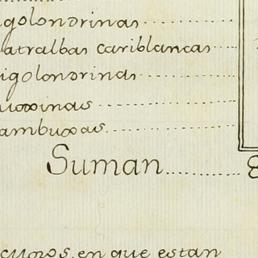 igolondrinas
atralbas cariblancas
igolondrinas
uioxinas
ambuxas
Suman
curos, en que estan